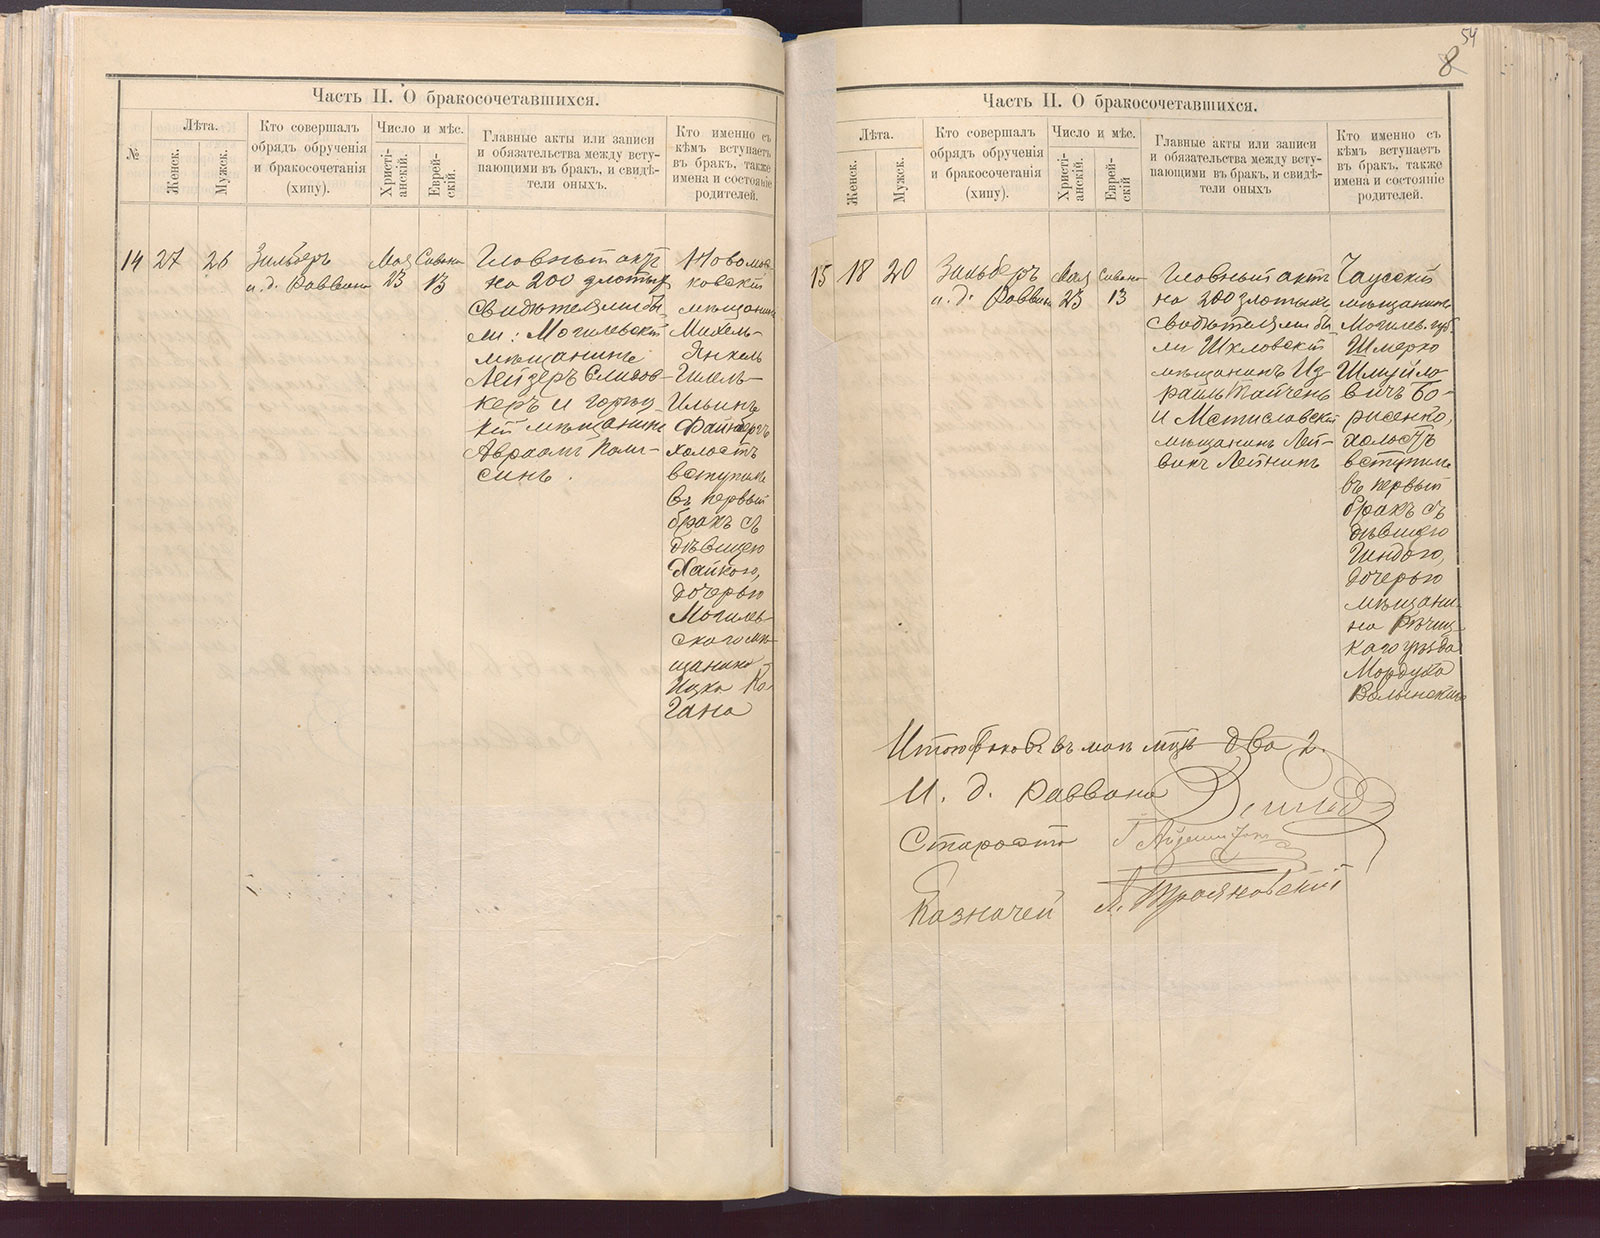 Часть II. О бракосочетавшихся.
№
Лѣта.
Женск.
Мужск.
Кто совершалъ
обрядъ обрученія
и бракосочетанія
(хипу).
Число и мѣс.
Христі-
анскій.
Еврей-
скій.
Главные акты или записи
и обязательства между всту-
пающими въ бракъ, и свидѣ-
тели оныхъ.
Кто именно съ
кѣмъ вступаетъ
въ бракъ, также
имена и состояніе
родителей.
14
27
26
Зильберъ
и. д. Раввина
Мая
23
Сивона
13
Главный актъ
на 200 злотыхъ
свидѣтелями бы-
ли: Могилевскій
мѣщанинъ
Лейзеръ
и
мѣщанинъ
Авраамъ
Ново
ковскій
мѣщанинъ
Михель-
Янкель
Ильинъ
холостъ
вступилъ
въ первый
бракъ съ
дѣвицею
Хайкою,
дочерью
Могилев-
скаго мѣ-
щанина
Ицка Ко-
гана
54
8
Часть II. О бракосочетавшихся.
Лѣта.
Женск.
Мужск.
Кто совершалъ
обрядъ обрученія
и бракосочетанія
(хипу).
Число и мѣс.
Христі-
анскій.
Еврей-
скій
Главные акты или записи
и обязательства между всту-
пающими въ бракъ, и свидѣ-
тели оныхъ
Кто именно съ
кѣмъ вступаетъ
въ бракъ, также
имена и состояніе
родителей.
15
18
20
Зильберъ
и. д. Раввина
Мая
23
Сивона
13
Главный актъ
на 200 злотыхъ
свидѣтелями бы-
ли Шкловскій
мѣщанинъ Из-
раиль
и Мстиславскій
мѣщанинъ Лей-
викъ Лейкинъ
Чаусскій
мѣщанинъ
Могилев. губ.
Шмерко
Шмуйло-
вичъ Бо-
рисенко,
холостъ
вступилъ
въ первый
бракъ съ
дѣвицею
Гиндою,
дочерью
мѣщани-
на Рѣчиц-
каго уѣзда
Мордуха
Волынскаго
Итого браковъ въ маѣ мцѣ два 2.
И. д. раввина
Староста
Казначей